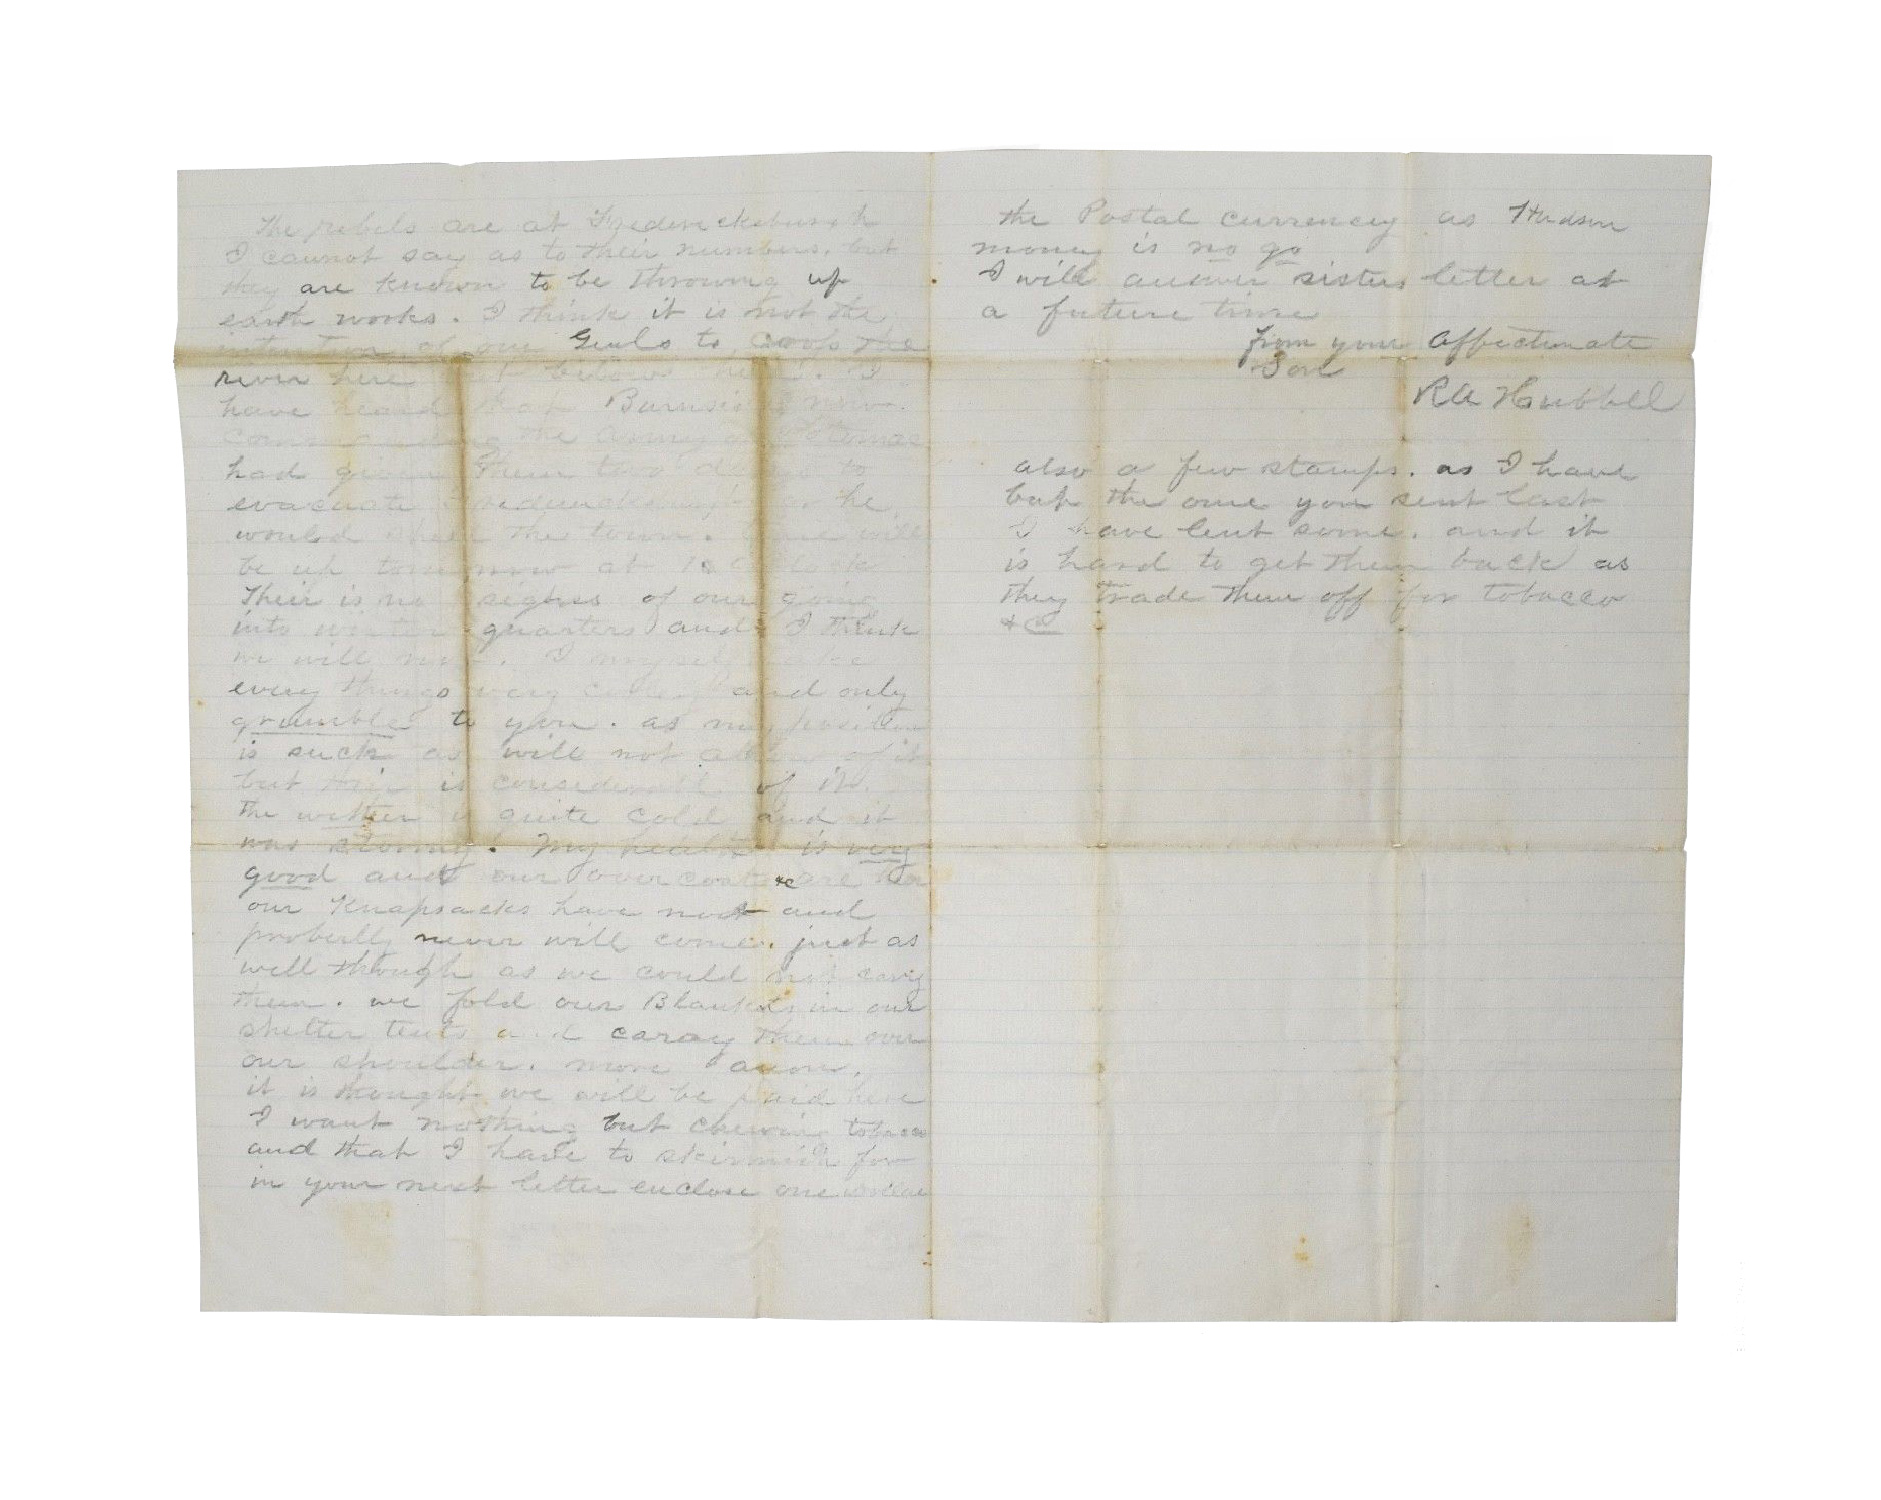 The rebels are at Fredericksburgh
I cannot say as to their numbers. but
they are known to be throwing up
earth works. I think it is not the
intention of our Genls to cross the
river here but below here. I
have heard that Burnside now
commanding the army of Potomac
had given them two days to
evacuate he
would shell the town. time will
be up tomorrow at 12 O clock
Their is no signs of our going
into winter quarters and I think
we will not. I myself take
every things very and only
grumble to you. as my position
is such as will not allow of it
but their is considerable of it.
the wether is quite cold and it
was stormy. My health is very
good and our overcoats &c are
our Knapsacks have not and
proberlly never will come. just as
well though as we could not carry
them. we fold our Blankets in our
shelter tents and carry them over
our shoulder. more anon.
it is thought we will be paid here
I want nothing but chewing tobacco
and that I have to skirmish for
in your next letter enclose one dollar
the Postal currencey as Hudson
money is no go
I will answer sisters letter at
a future time
from your affectionate
Son
RA Hubbell
also a few stamps. as I have
but the one you sent last
I have lent some. and it
is hard to get them back as
they trade them off for tobacco
&c